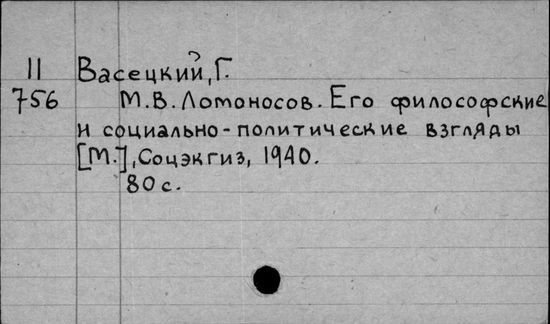 II Васецкий, Г.
756 М.В. Ломоносов. Его философские
и социально-политические взгляды
[М.], Соцэкгиз, 1940.
80 с.